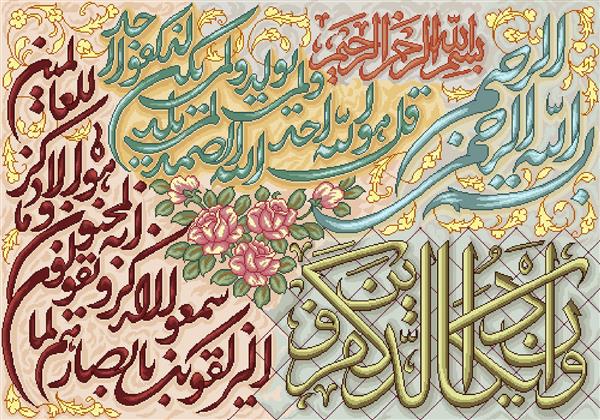 بسم الله الرحمن الرحيم
بسم الله الرحمن الرحيم
قل هو الله احد
الله الصمد لم يلد
ولم يولد ولم يكن
له كفوا احد
وان يكاد الذين كفروا
ليزلقونك بابصارهم لما
سمعوا الذكر و يقولون
انه لمجنون و ما
هو الا ذكر
للعالمين